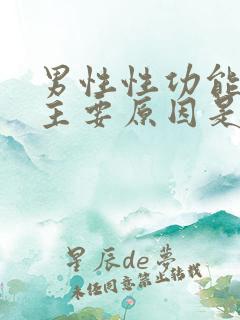 男性性功能
主要原因是
星辰de梦
未经同意禁止转载